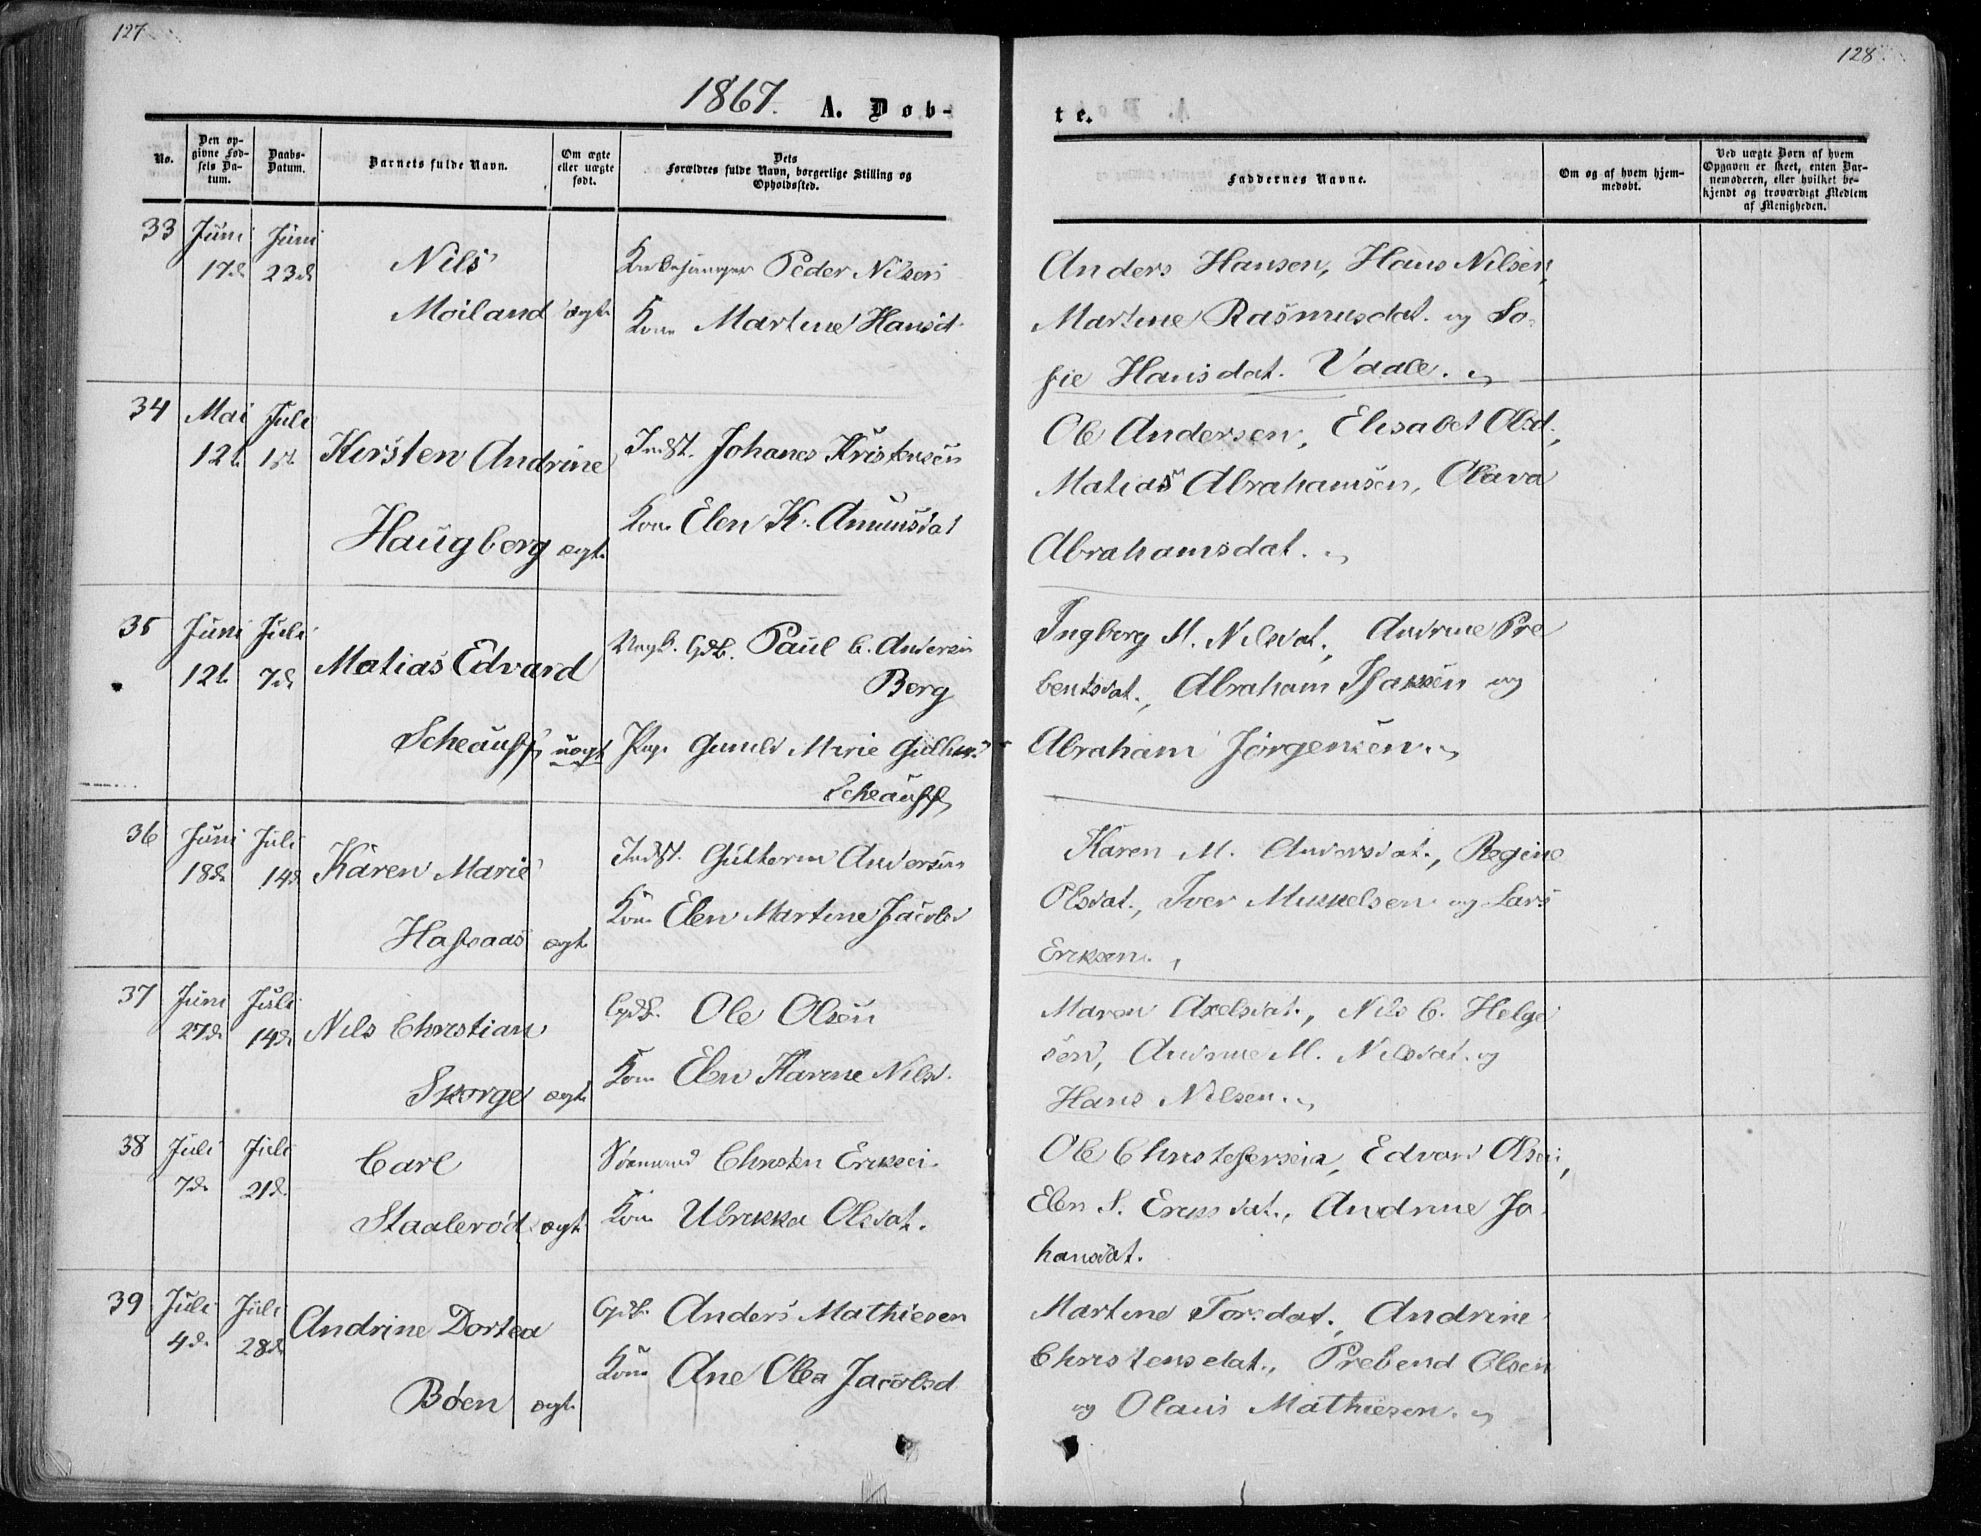 127
128
1867.
A. Døb-
te.
No.
Den op-
givne Fød-
sels Da-
tum.
Daabs-
Datum.
Barnets fulde Navn.
Om ægte
eller uægte
født.
Dets
Forældres fulde Navn, borgerlige Stilling og
Opholdssted.
Faddernes Navne.
Om og af hvem hjem-
medøbt.
Ved uægte Børn af hvem
Opgaven er skeet, enten Bar-
nemoderen, eller hvilket be-
kjendt og troværdigt Medlem
af Menigheden.
33 Juni Juni
17d. 23d
Nils
Moiland ægt.
Peder Nilsen
Kone Martine Hansd.
Anders Hansen, Hans Nilsen,
Martine Rasmusdat. og So-
fie Hansdat. Vaale.
34 Mai Juli
12t. 1st. Kirsten Andrine
Haugberg ægt.
Indst. Johanes Kristensen
Kone Elen K. Amunsdat
Ole Andersen, Elisabet Olsd.,
Matias Abrahamsen, Olava
Abrahamsdat.
35 Juni Juli
12t. 7d. Matias Edvard
Scheauff uægt
Ungk. Gdb. Paul C. Andersen
Berg
Pige Gunild Marie Gullus
Scheauff
Ingborg M. Nilsdat., Andrine Pre
bentsdat., Abraham Isaksen og
Abraham Jörgensen.
36 Juni Juli
18d. 14d. Karen Marie
Hafsaas ægt.
Indst. Gutterm Andersen
Kone Elen Martine Jacobsd
Karen M. Andersdat., Regine
Olsdat., Iver Mikkelsen og Lars
Eriksen.
37 Juni Juli
27d. 14d. Nils Christian
Skorge ægt.
Gdb. Ole Olsen
Kone Elen Karine Nilsd.
Maren Axelsdat., Nils C. Helge
sen, Andrine M. Nilsdat. og
Hans Nilsen.
38 Juli Juli
7d. 21d.
Carl
Staalerød ægt.
Sömand Christen Eriksen
Kone Ulrikka Olsdat.
Ole Christofersen, Edvard Olsen,
Elen S. Eriksdat., Andrine Jo
hansdat.
39 Juli Juli
4d. 28d. Andrine Dortea
Böen ægt.
Gdb. Anders Mathiesen
Kone Ane Olea Jacobsd
Martine Torsdat., Andrine
Christensdat., Prebend Olsen
og Olaus Mathiesen.